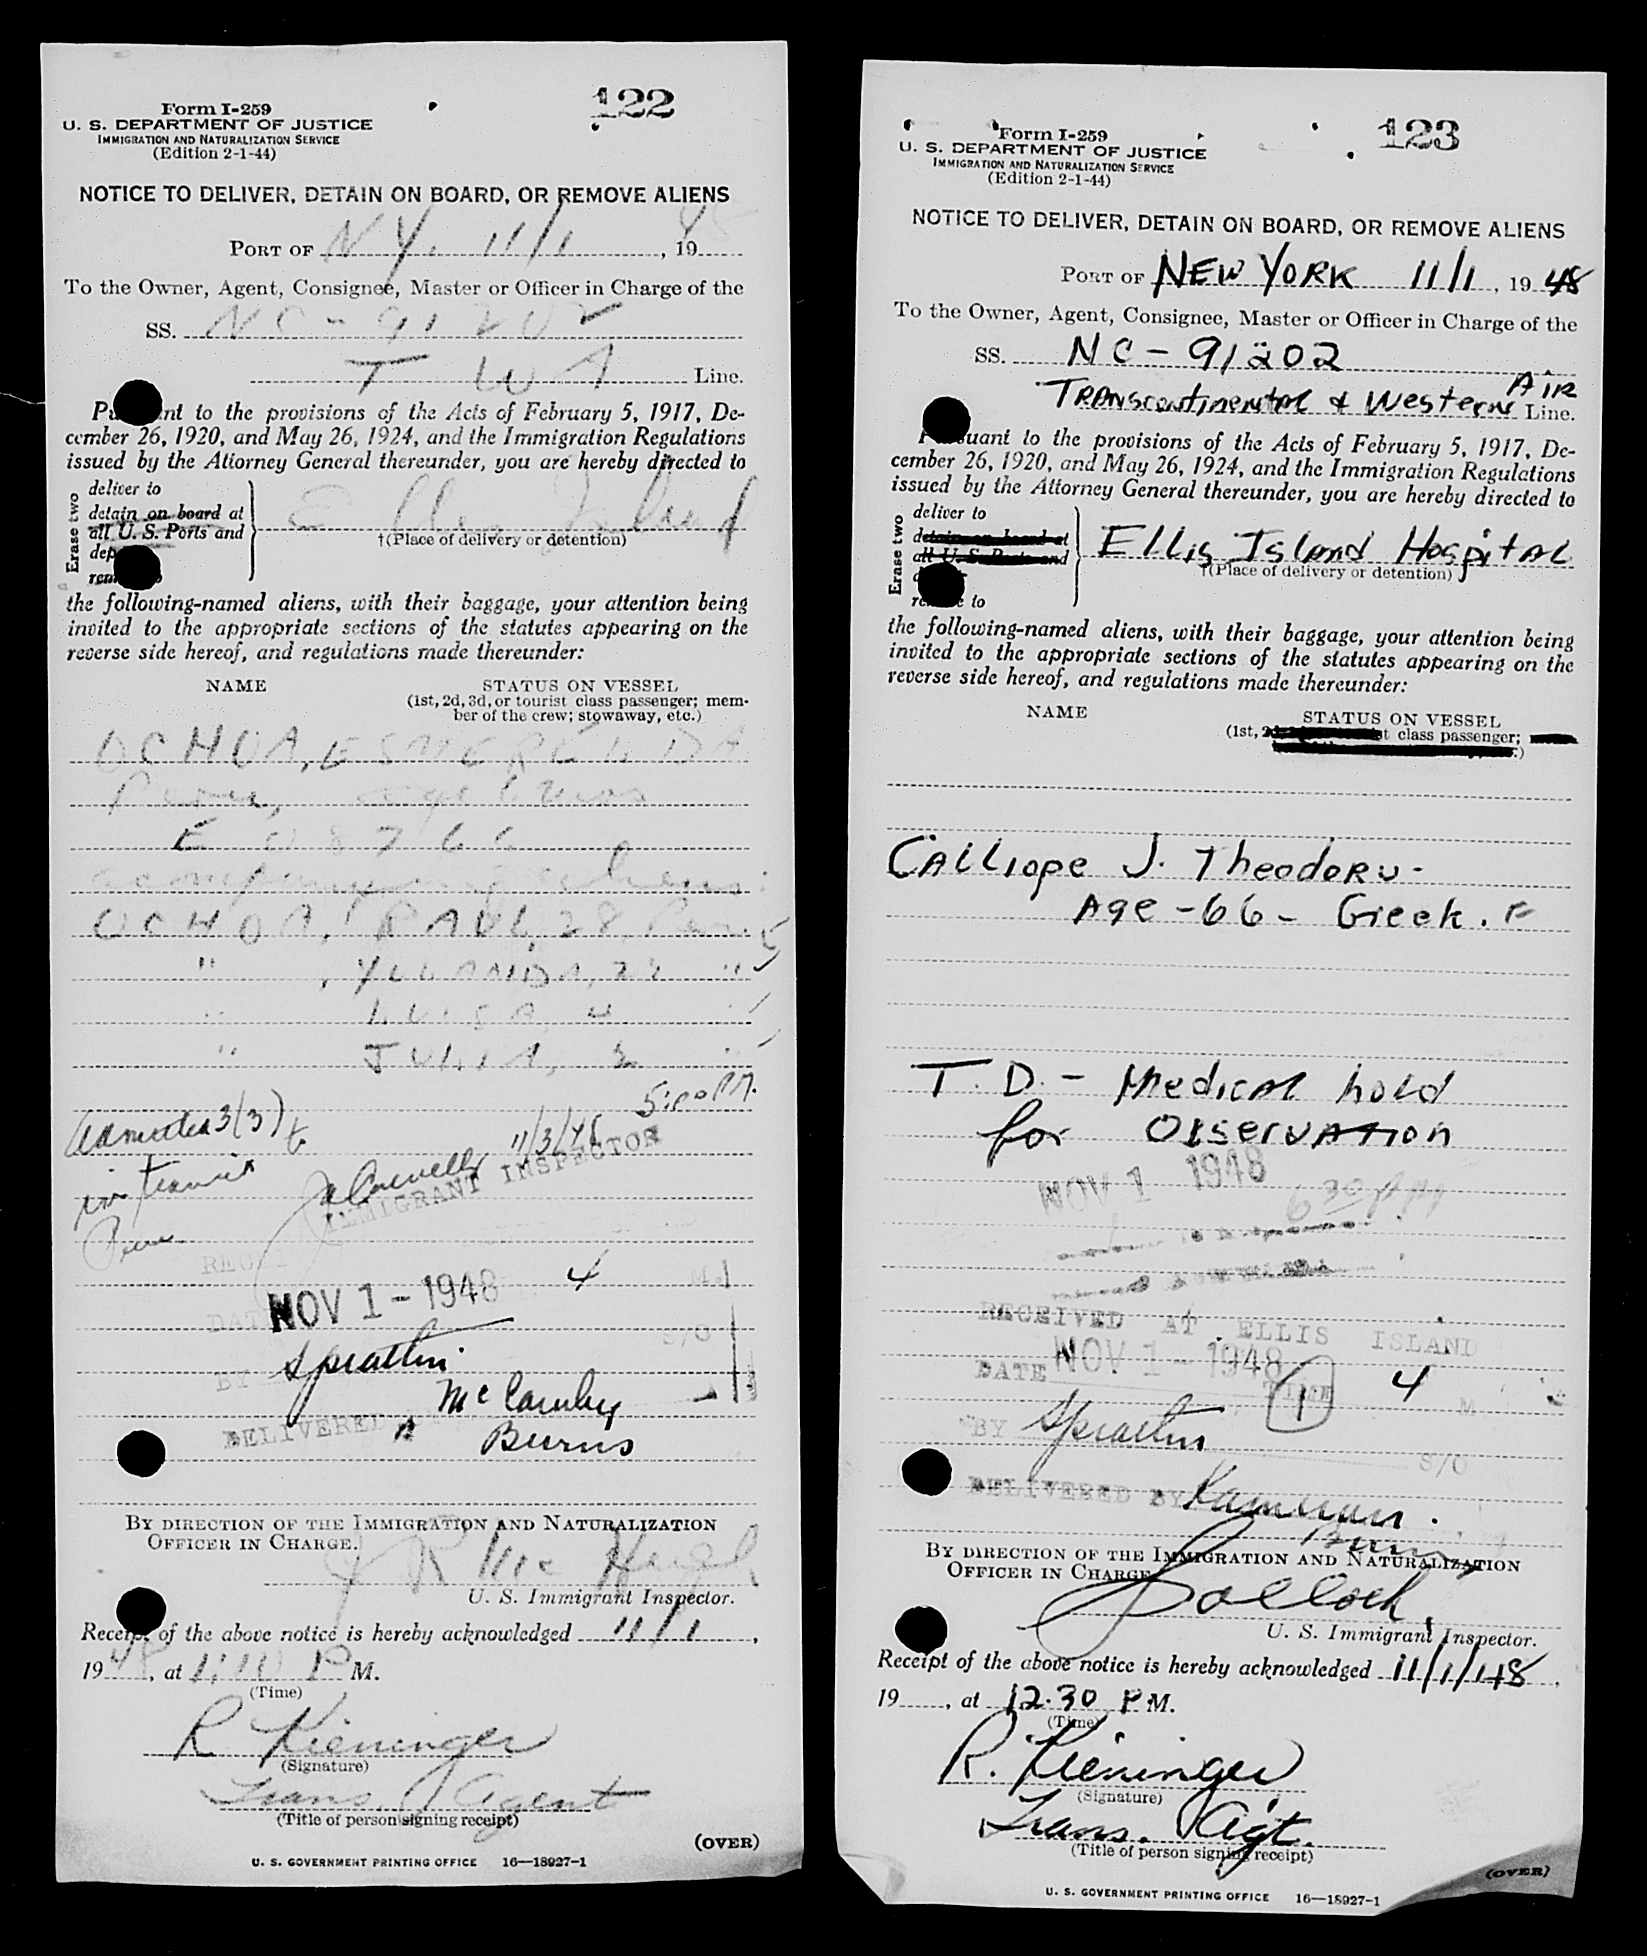 Form I-259
U. S. DEPARTMENT OF JUSTICE
IMMIGRATION AND NATURALIZATION SERVICE
(Edition 2-1-44)
122
NOTICE TO DELIVER, DETAIN ON BOARD, OR REMOVE ALIENS
PORT OF N Y. 11/1, 1948
To the Owner, Agent, Consignee, Master or Officer in Charge of the
SS. NC-91202
T W A Line.
Pursuant to the provisions of the Acts of February 5, 1917, De-
cember 26, 1920, and May 26, 1924, and the Immigration Regulations
issued by the Attorney General thereunder, you are hereby directed to
Erase two
deliver to
detain on board at
all U. S. Ports and
Ellis Island
†(Place of delivery or detention)
the following-named aliens, with their baggage, your attention being
invited to the appropriate sections of the statutes appearing on the
reverse side hereof, and regulations made thereunder:
NAME STATUS ON VESSEL
(1st, 2d, 3d, or tourist class passenger; mem-
ber of the crew; stowaway, etc.)
OCHOA, ESMERELDA
Peru, age
accompanying aliens:
OCHOA, RAUL, 28, Peru 5
" , YOLANDA, "
" LUISA, 4 "
" JULIA, "
5:00 PM.
Admitted 3(3)
11/3/48
in transit
IMMIGRANT INSPECTOR
Peru
NOV 1 - 1948 4 M.
DATE
Sprattlin S/O
BY
McCamley
DELIVERED
Burns
BY DIRECTION OF THE IMMIGRATION AND NATURALIZATION
OFFICER IN CHARGE.
J R McHugh
U. S. Immigrant Inspector.
Receipt of the above notice is hereby acknowledged 11/1,
1948, at 1:10 P M.
(Time)
R Kieninger
(Signature)
Trans Agent
(Title of person signing receipt)
(OVER)
U. S. GOVERNMENT PRINTING OFFICE 16—18927-1
Form I-259
U. S. DEPARTMENT OF JUSTICE
IMMIGRATION AND NATURALIZATION SERVICE
(Edition 2-1-44)
123
NOTICE TO DELIVER, DETAIN ON BOARD, OR REMOVE ALIENS
PORT OF NEW YORK 11/1, 1948
To the Owner, Agent, Consignee, Master or Officer in Charge of the
SS. NC-91202
Transcontinental & Western Air Line.
Pursuant to the provisions of the Acts of February 5, 1917, De-
cember 26, 1920, and May 26, 1924, and the Immigration Regulations
issued by the Attorney General thereunder, you are hereby directed to
Erase two
deliver to
detain on board at
all U. S. Ports and
remove to
Ellis Island Hospital
†(Place of delivery or detention)
the following-named aliens, with their baggage, your attention being
invited to the appropriate sections of the statutes appearing on the
reverse side hereof, and regulations made thereunder:
NAME STATUS ON VESSEL
(1st, class passenger;
Calliope J. Theodoru-
Age-66- Greek. F
T. D. - Medical hold
for Observation
NOV 1 1948
6 30 PM
RECEIVED AT ELLIS ISLAND
DATE NOV 1 - 1948 TIME 4 M
1
BY Sprattlin S/O
DELIVERED BY
Burns
BY DIRECTION OF THE IMMIGRATION AND NATURALIZATION
OFFICER IN CHARGE
Pollock
U. S. Immigrant Inspector.
Receipt of the above notice is hereby acknowledged 11/1/48,
19, at 12.30 P.M.
(Time)
R. Kieninger
(Signature)
Trans. Agt.
(Title of person signing receipt)
(OVER)
U. S. GOVERNMENT PRINTING OFFICE 16—18927-1